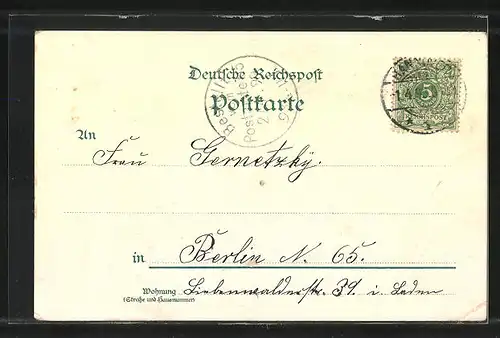 Deutsche Reichspost
Postkarte
Bestellt
vom
Postamte
An
Frau Gernetzky.
in Berlin N. 65.
Wohnung Liebenwalderstr. 39. i. Laden
(Straße und Hausnummer)
5
REICHSPOST